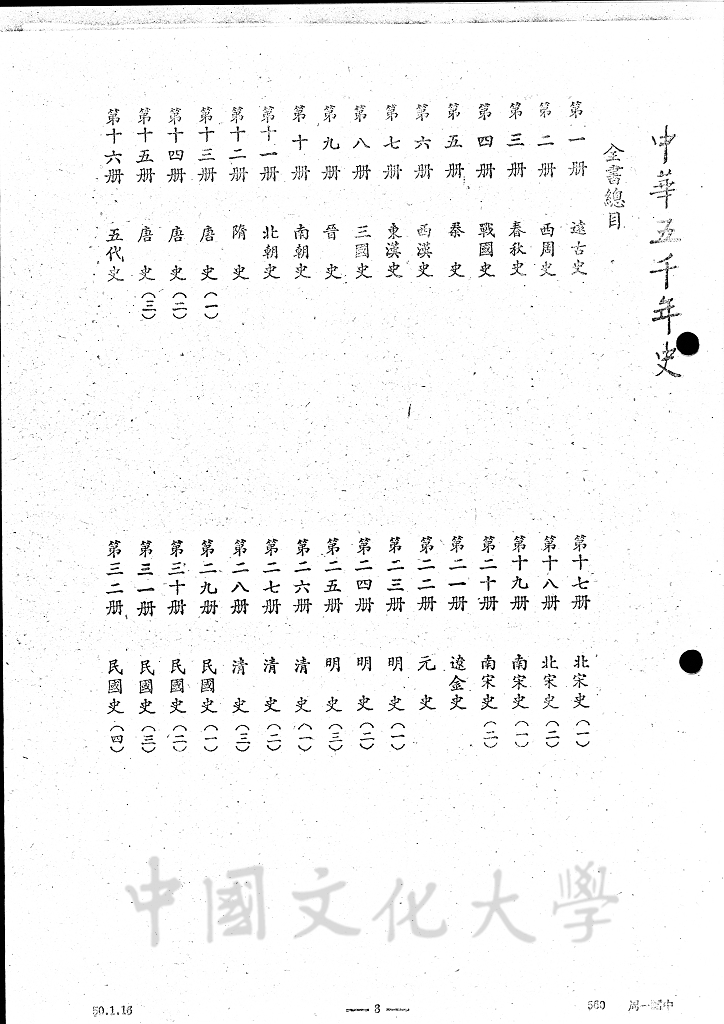 中華五千年史
全書總目
第一册 遠古史
第二册 西周史
第三册 春秋史
第四册 戰國史
第五册 秦史
第六册 西漢史
第七册 東漢史
第八册 三國史
第九册 晉史
第十册 南朝史
第十一册 北朝史
第十二册 隋史
第十三册 唐史(一)
第十四册 唐史(二)
第十五册 唐史(三)
第十六册 五代史
第十七册 北宋史(一)
第十八册 北宋史(二)
第十九册 南宋史(一)
第二十册 南宋史(二)
第二一册 遼金史
第二二册 元史
第二三册 明史(一)
第二四册 明史(二)
第二五册 明史(三)
第二六册 清史(一)
第二七册 清史(二)
第二八册 清史(三)
第二九册 民國史(一)
第三十册 民國史(二)
第三一册 民國史(三)
第三二册 民國史(四)
中國文化大學
50.1.16
— 3 —
560